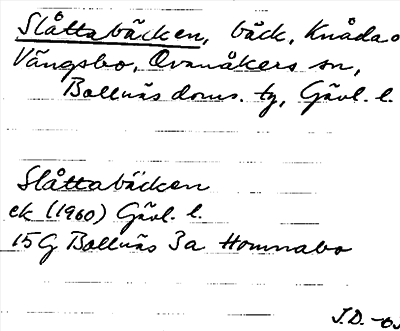 Slåttabäcken, bäck, Knåda o
Vängsbo, Ovanåkers sn,
Bollnäs doms. tg, Gävl. l.
Slåttabäcken
ek (1960) Gävl. l.
15G Bollnäs 3a Homnabo
J.D. -63